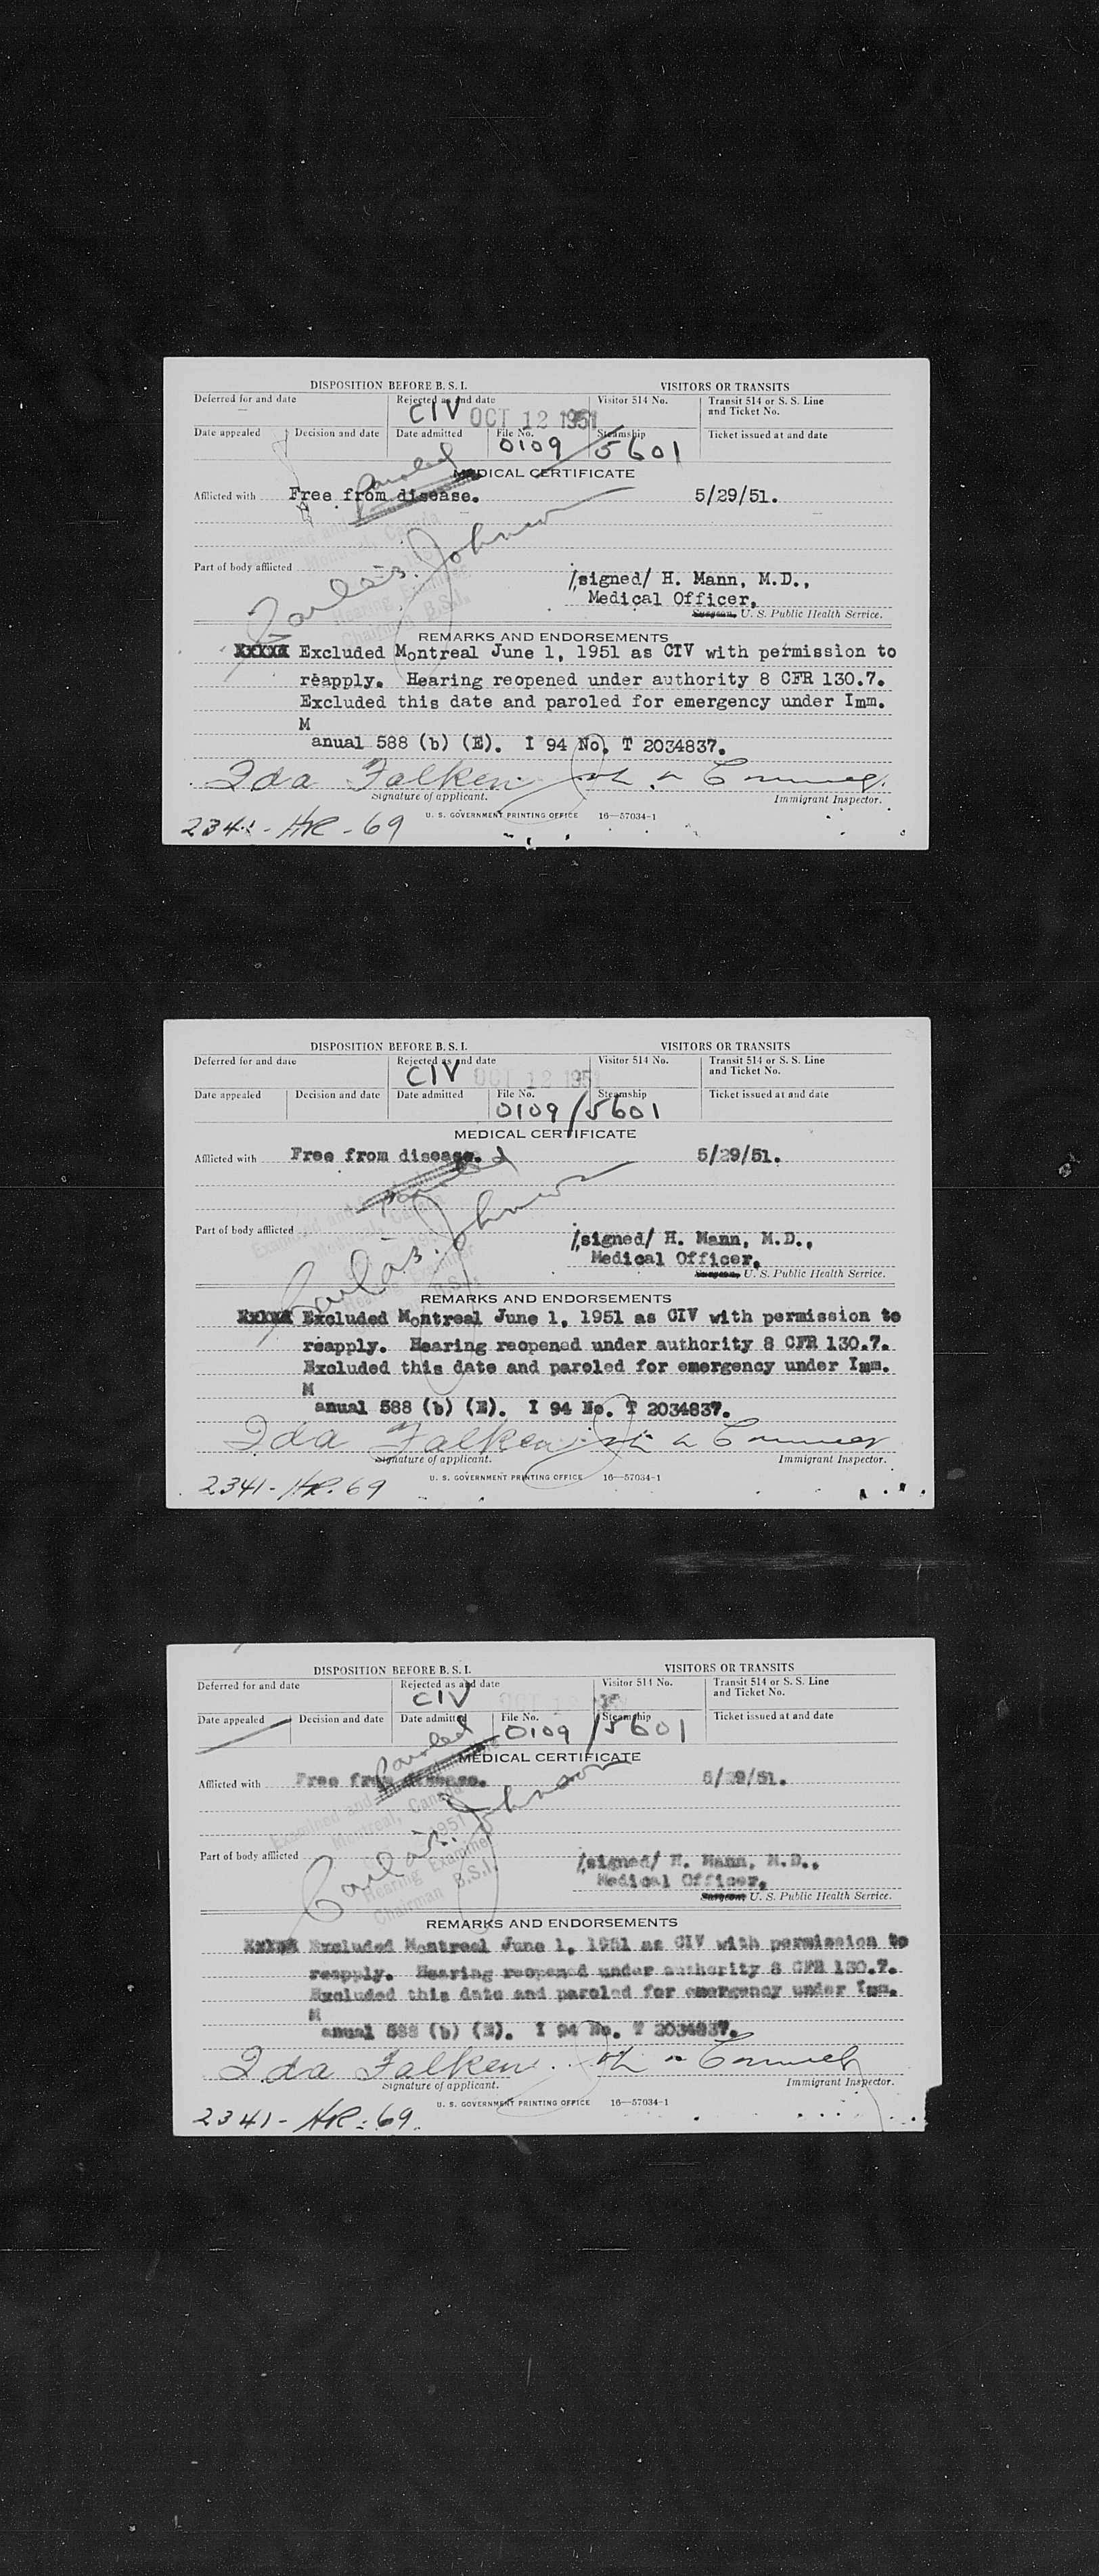 DISPOSITION BEFORE B. S. I. VISITORS OR TRANSITS
Deferred for and date Rejected as and date Visitor 514 No. Transit 514 or S. S. Line
and Ticket No.
CIV OCT 12 1951
Date appealed Decision and date Date admitted File No. Steamship Ticket issued at and date
0109/5601
Paroled
MEDICAL CERTIFICATE
Afflicted with Free from disease. 5/29/51.
Examined and
Montreal, Canada
Part of body afflicted
/signed/ H. Mann, M.D.,
Hearing Examiner
Chairman B.S.I.
Medical Officer,
Surgeon, U. S. Public Health Service.
REMARKS AND ENDORSEMENTS
xxxxx Excluded Montreal June 1, 1951 as CIV with permission to
reapply. Hearing reopened under authority 8 CFR 130.7.
Excluded this date and paroled for emergency under Imm.
M
anual 588 (b) (E). I 94 No. T 2034837.
Ida Falken
Signature of applicant. Immigrant Inspector.
U. S. GOVERNMENT PRINTING OFFICE 16—57034-1
2341-HR-69
DISPOSITION BEFORE B. S. I. VISITORS OR TRANSITS
Deferred for and date Rejected as and date Visitor 514 No. Transit 514 or S. S. Line
and Ticket No.
CIV OCT 12 1951
Date appealed Decision and date Date admitted File No. Steamship Ticket issued at and date
0109/5601
MEDICAL CERTIFICATE
Afflicted with Free from disease. 5/29/51.
Paroled
Part of body afflicted
/signed/ H. Mann, M.D.,
Medical Officer,
Surgeon, U. S. Public Health Service.
REMARKS AND ENDORSEMENTS
xxxxx Excluded Montreal June 1, 1951 as CIV with permission to
reapply. Hearing reopened under authority 8 CFR 130.7.
Excluded this date and paroled for emergency under Imm.
M
anual 588 (b) (E). I 94 No. T 2034837.
Ida Falken
Signature of applicant. Immigrant Inspector.
U. S. GOVERNMENT PRINTING OFFICE 16—57034-1
2341-HR-69
DISPOSITION BEFORE B. S. I. VISITORS OR TRANSITS
Deferred for and date Rejected as and date Visitor 514 No. Transit 514 or S. S. Line
and Ticket No.
CIV OCT 12
Date appealed Decision and date Date admitted File No. Steamship Ticket issued at and date
0109/5601
Paroled
MEDICAL CERTIFICATE
Afflicted with Free from disease. 5/29/51.
Examined and
Montreal, Canada
1951
Part of body afflicted
/signed/ H. Mann, M.D.,
Hearing Examiner
Chairman B.S.I.
Medical Officer,
Surgeon, U. S. Public Health Service.
REMARKS AND ENDORSEMENTS
xxxxx Excluded Montreal June 1, 1951 as CIV with permission to
reapply. Hearing reopened under authority 8 CFR 130.7.
Excluded this date and paroled for emergency under Imm.
M
anual 588 (b) (E). I 94 No. T 2034837.
Ida Falken
Signature of applicant. Immigrant Inspector.
U. S. GOVERNMENT PRINTING OFFICE 16—57034-1
2341-HR-69